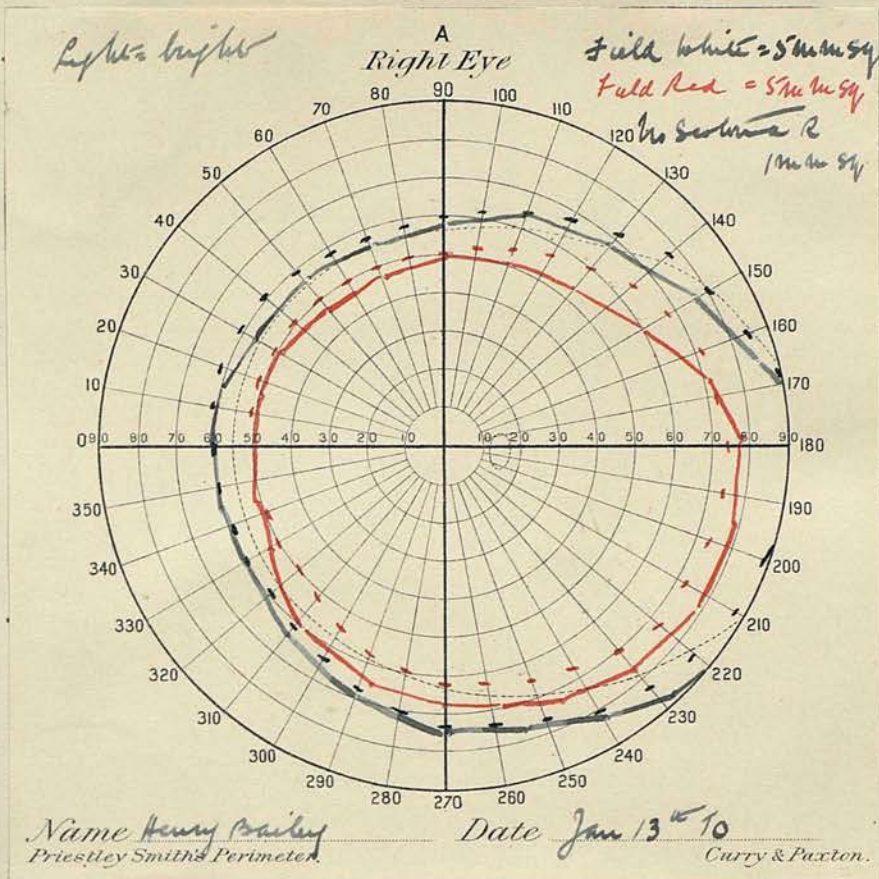 Light = bright
A
Right Eye
Field White = 5 mm sq
Field Red = 5 mm sq
No Scotoma R
1 mm sq
90 100 110 120 130 140 150 160 170 180 190 200 210 220 230 240 250 260 270 280 290 300 310 320 330 340 350 0 10 20 30 40 50 60 70 80
90 80 70 60 50 40 30 20 10 10 20 30 40 50 60 70 80 90
Name Henry Bailey Date Jan 13th
Priestley Smith's Perimeter. Curry & Paxton.